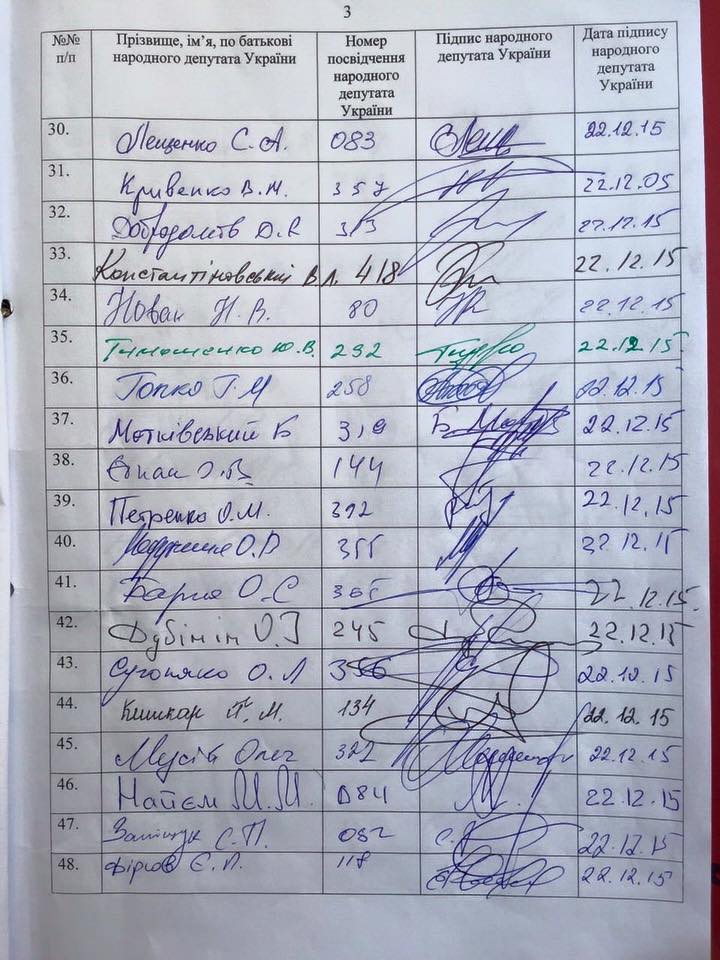 3
№№ Прізвище, ім’я, по батькові Номер Підпис народного Дата підпису
п/п народного депутата України посвідчення депутата України народного
народного депутата
депутата України
України
30. Лещенко С. А. 083 22.12.15
31. Кривенко В.М. 357 22.12.05
32. Д.Є 313 22.12.15
33. Константіновський В.Л. 418 22.12.15
34. Новак Н. В. 80 22.12.15
35. Тимошенко Ю.В. 292 22.12.15
36. Гопко Г.М 258 22.12.15
37. Матківський Б 319 22.12.15
38. О.В. 144 22.12.15
39. Петренко О.М. 392 22.12.15
40. О.В 355 22.12.15
41. Барна О.С 22.12.15.
42. Дубінін О.І 245 22.12.15
43. Сугоняко О. Л 356 22.12.15
44. Кишкар П. М. 134 22.12.15
45. Мусій Олег 322 22.12.15
46. Найєм М.М. 084 22.12.15
47. Заліщук С.П. 082 22.12.15
48. Фірсов Є.П. 118 22.12.15